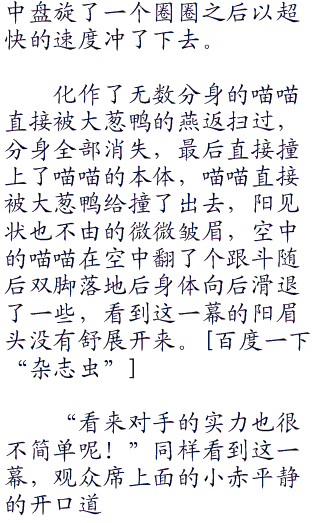 中盘旋了一个圈圈之后以超
快的速度冲了下去。
化作了无数分身的喵喵
直接被大葱鸭的燕返扫过，
分身全部消失，最后直接撞
上了喵喵的本体，喵喵直接
被大葱鸭给撞了出去，阳见
状也不由的微微皱眉，空中
的喵喵在空中翻了个跟斗随
后双脚落地后身体向后滑退
了一些，看到这一幕的阳眉
头没有舒展开来。[百度一下
“杂志虫”]
“看来对手的实力也很
不简单呢！”同样看到这一
幕，观众席上面的小赤平静
的开口道